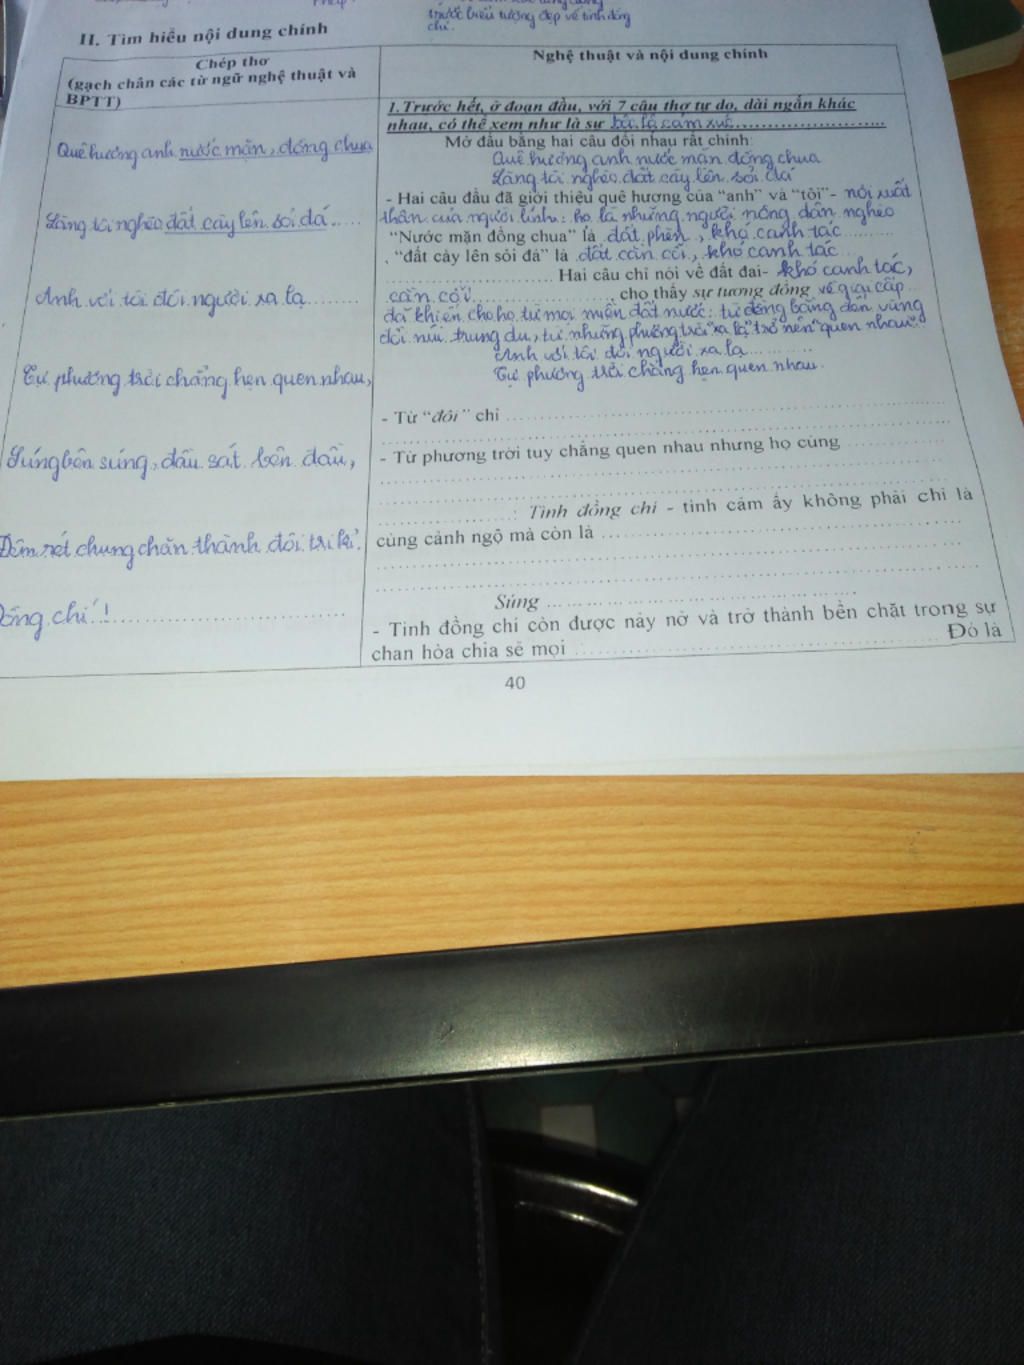 trước biểu tượng đẹp về tình đồng
chí.
II. Tìm hiểu nội dung chính
Chép thơ
(gạch chân các từ ngữ nghệ thuật và
BPTT)
Quê hương anh nước mặn, đồng chua
Làng tôi nghèo đất cày lên sỏi đá.....
Anh với tôi đôi người xa lạ.........
Tự phương trời chẳng hẹn quen nhau,
Súng bên súng, đầu sát bên đầu,
Đêm rét chung chăn thành đôi tri kỉ.
Đồng chí!
Nghệ thuật và nội dung chính
1. Trước hết, ở đoạn đầu, với 7 câu thơ tự do, dài ngắn khác
nhau, có thể xem như là sự bộc lộ cảm xúc
Mở đầu bằng hai câu đối nhau rất chỉnh:
Quê hương anh nước mặn đồng chua
Làng tôi nghèo đất cày lên sỏi đá
- Hai câu đầu đã giới thiệu quê hương của "anh" và "tôi"- nơi xuất
thân của người lính: họ là những người nông dân nghèo
"Nước mặn đồng chua" là đất phèn, khó canh tác
"đất cày lên sỏi đá" là đất cằn cỗi, khó canh tác
Hai câu chỉ nói về đất đai- khó canh tác,
cằn cỗi cho thấy sự tương đồng về giai cấp
đã khiến cho họ từ mọi miền đất nước: từ đồng bằng đến vùng
đồi núi trung du, từ những phương trời "xa lạ" trở nên "quen nhau".
Anh với tôi đôi người xa lạ
Tự phương trời chẳng hẹn quen nhau.
- Từ "đôi" chỉ
- Từ phương trời tuy chẳng quen nhau nhưng họ cùng
: Tình đồng chí - tình cảm ấy không phải chỉ là
cùng cảnh ngộ mà còn là
Súng
- Tình đồng chí còn được nảy nở và trở thành bền chặt trong sự
chan hòa chia sẻ mọi Đó là
40